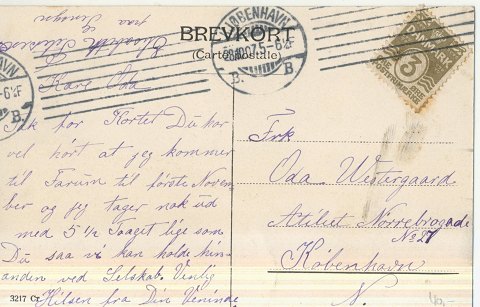 BREVKORT
(Carte postale)
KJØBENHAVN
28.10.07.5-6½F
B.
HAVN
-6½F
B.
DANMARK
3
Elisabeth
fra
Kære Oda
Tak for Kortet Du har
vel hørt at jeg kommer
til Farum til første Novem
ber og jeg tager nok ud
med 5½ Toaget lige som
Du saa vi kan holde hin
anden ved Selskab. Venlig
Hilsen fra Din Veninde
3217 Cr.
Frk
Oda Westergaard
Atiliet Nørrebrogade
No 27
København
N.
40,-